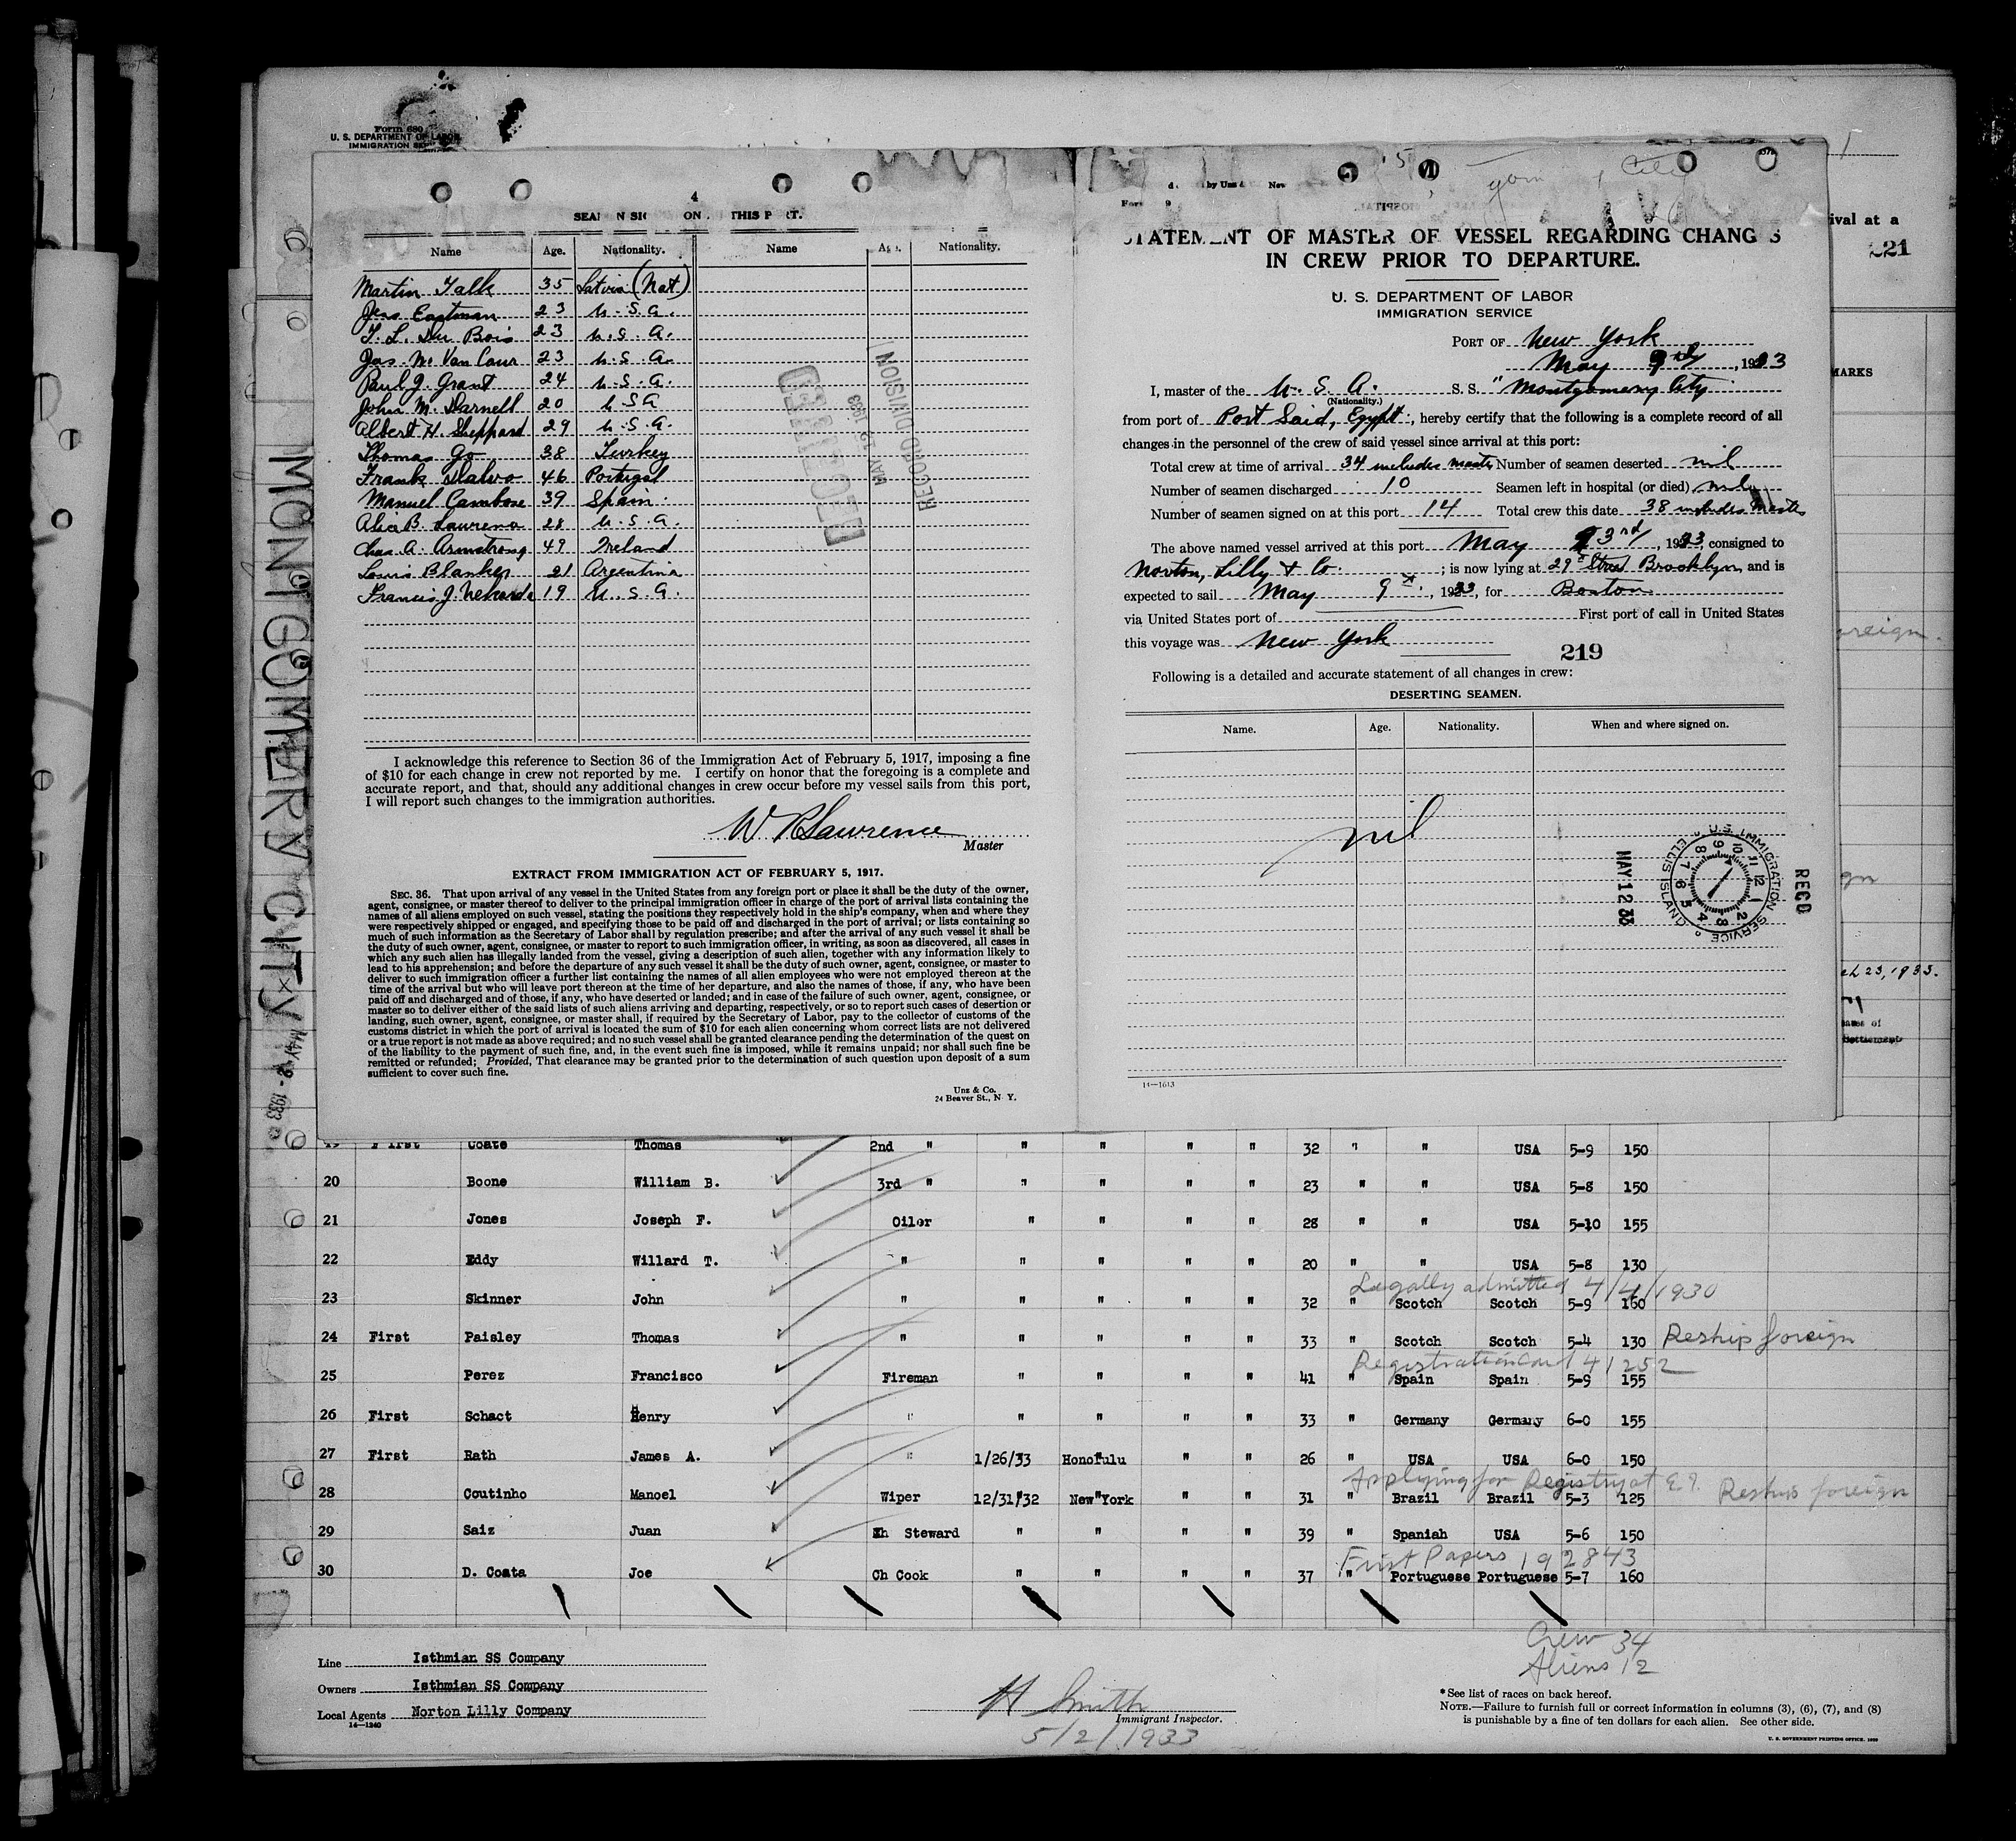 Form 680
U. S. DEPARTMENT OF LABOR
IMMIGRATION
4
THIS PORT.
Name Age. Nationality. Name Nationality.
Martin 35 Latvia (Nat)
Eastman 23 U. S. A.
Du Bois 23 U. S. A.
Jas. M. Van 23 U. S. A.
Paul J. Grant 24 U. S. A.
John M. Darnell 20 U S A
Albert H. Sheppard 29 U. S. A.
Thomas Go 38 Turkey
Frank 46 Portugal
Manuel 39 Spain
Alice B. Lawrence 28 U. S. A.
Chas A. Armstrong 49 Ireland
Louis Blanker 21 Argentina
Francis J. 19 U. S. A.
RECEIVED
MAY 12 1933
RECORD DIVISION
I acknowledge this reference to Section 36 of the Immigration Act of February 5, 1917, imposing a fine
of $10 for each change in crew not reported by me. I certify on honor that the foregoing is a complete and
accurate report, and that, should any additional changes in crew occur before my vessel sails from this port,
I will report such changes to the immigration authorities.
Lawrence
Master
EXTRACT FROM IMMIGRATION ACT OF FEBRUARY 5, 1917.
SEC. 36. That upon arrival of any vessel in the United States from any foreign port or place it shall be the duty of the owner,
agent, consignee, or master thereof to deliver to the principal immigration officer in charge of the port of arrival lists containing the
names of all aliens employed on such vessel, stating the positions they respectively hold in the ship's company, when and where they
were respectively shipped or engaged, and specifying those to be paid off and discharged in the port of arrival; or lists containing so
much of such information as the Secretary of Labor shall by regulation prescribe; and after the arrival of any such vessel it shall be
the duty of such owner, agent, consignee, or master to report to such immigration officer, in writing, as soon as discovered, all cases in
which any such alien has illegally landed from the vessel, giving a description of such alien, together with any information likely to
lead to his apprehension; and before the departure of any such vessel it shall be the duty of such owner, agent, consignee, or master to
deliver to such immigration officer a further list containing the names of all alien employees who were not employed thereon at the
time of the arrival but who will leave port thereon at the time of her departure, and also the names of those, if any, who have been
paid off and discharged and of those, if any, who have deserted or landed; and in case of the failure of such owner, agent, consignee, or
master so to deliver either of the said lists of such aliens arriving and departing, respectively, or so to report such cases of desertion or
landing, such owner, agent, consignee, or master shall, if required by the Secretary of Labor, pay to the collector of customs of the
customs district in which the port of arrival is located the sum of $10 for each alien concerning whom correct lists are not delivered
or a true report is not made as above required; and no such vessel shall be granted clearance pending the determination of the quest on
of the liability to the payment of such fine, and, in the event such fine is imposed, while it remains unpaid; nor shall such fine be
remitted or refunded; Provided, That clearance may be granted prior to the determination of such question upon deposit of a sum
sufficient to cover such fine.
Unz & Co.
24 Beaver St., N. Y.
by Unz &
STATEMENT OF MASTER OF VESSEL REGARDING CHANGES
IN CREW PRIOR TO DEPARTURE.
U. S. DEPARTMENT OF LABOR
IMMIGRATION SERVICE
PORT OF New York
May 9th, 1933
I, master of the U. S. A. S. S. "Montgomery City
(Nationality.)
from port of Port Said, Egypt, hereby certify that the following is a complete record of all
changes in the personnel of the crew of said vessel since arrival at this port:
Total crew at time of arrival 34 includes master Number of seamen deserted nil
Number of seamen discharged 10 Seamen left in hospital (or died) nil
Number of seamen signed on at this port 14 Total crew this date 38 includes master
The above named vessel arrived at this port May 3rd, 1933, consigned to
Norton, Lilly & Co. ; is now lying at 29th Street Brooklyn and is
expected to sail May 9th, 1933, for Boston
via United States port of First port of call in United States
this voyage was New York
219
Following is a detailed and accurate statement of all changes in crew:
DESERTING SEAMEN.
Name. Age. Nationality. When and where signed on.
nil
MAY 12 33
U.S. IMMIGRATION SERVICE ELLIS ISLAND
REC'D
14—1613
ival at a
221
MARKS
23, 1933.
MONTGOMERY CITY
MAY 8 - 1933
19 First Coate Thomas 2nd " " " " " 32 " " USA 5-9 150
20 Boone William B. 3rd " " " " " 23 " " USA 5-8 150
21 Jones Joseph F. Oiler " " " " 28 " " USA 5-10 155
22 Eddy Willard T. " " " " " 20 " " USA 5-8 130
Legally admitted 4/4/1930
23 Skinner John " " " " " 32 " Scotch Scotch 5-9 160
24 First Paisley Thomas " " " " " 33 " Scotch Scotch 5-4 130 Reship foreign
Registration Card 41252
25 Perez Francisco Fireman " " " " 41 " Spain Spain 5-9 155
26 First Schact Henry " " " " " 33 " Germany Germany 6-0 155
27 First Rath James A. " 1/26/33 Honolulu " " 26 " USA USA 6-0 150
Applying for Registry at E.I. Reship foreign
28 Coutinho Manoel Wiper 12/31/32 New York " " 31 " Brazil Brazil 5-3 125
29 Saiz Juan Ch Steward " " " " 39 " Spanish USA 5-6 150
First Papers 192843
30 D. Costa Joe Ch Cook " " " " 37 " Portuguese Portuguese 5-7 160
Crew 34
Aliens 12
Line Isthmian SS Company
Owners Isthmian SS Company
Local Agents Norton Lilly Company
14—1240
H Smith
Immigrant Inspector.
5/2/1933
*See list of races on back hereof.
NOTE.—Failure to furnish full or correct information in columns (3), (6), (7), and (8)
is punishable by a fine of ten dollars for each alien. See other side.
U. S. GOVERNMENT PRINTING OFFICE.